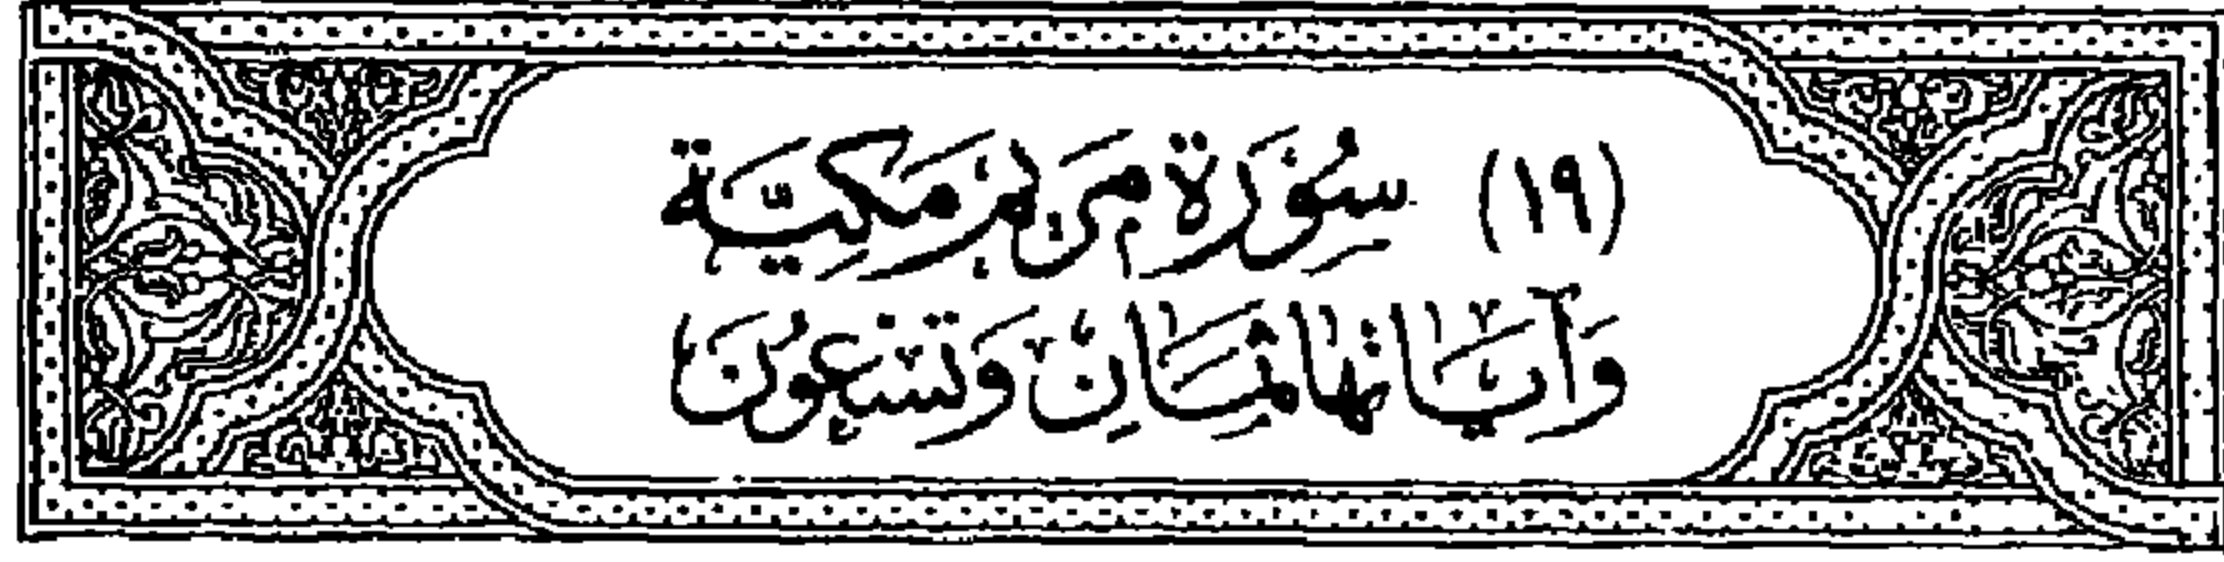 (١٩) سُورَة مَريَم مَكِيَّة
وَآيَاتهَا ثَمَانٍ وَتسْعُونَ